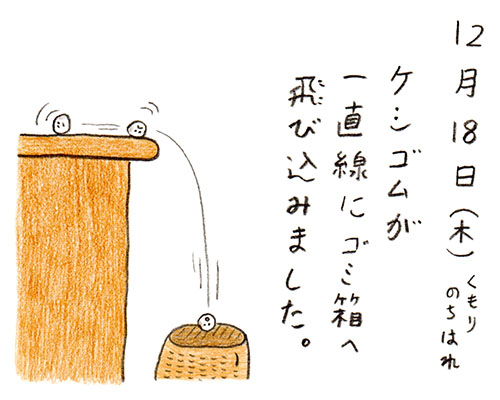 12月18日(木)くもりのちはれ
ケシゴムが
一直線にゴミ箱へ
飛び込みました。